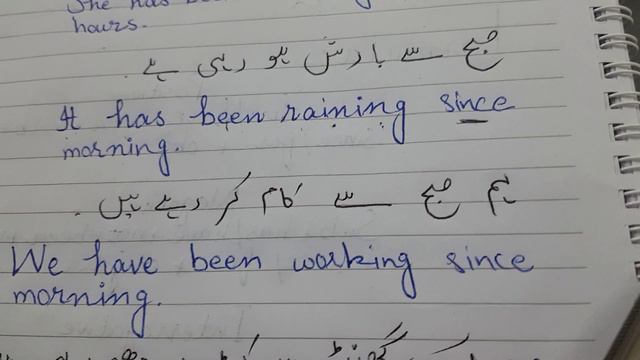 She has been
hours.
صبح سے بارش ہو رہی ہے۔
It has been raining since
morning.
ہم صبح سے کام کر رہے ہیں۔
We have been working since
morning.